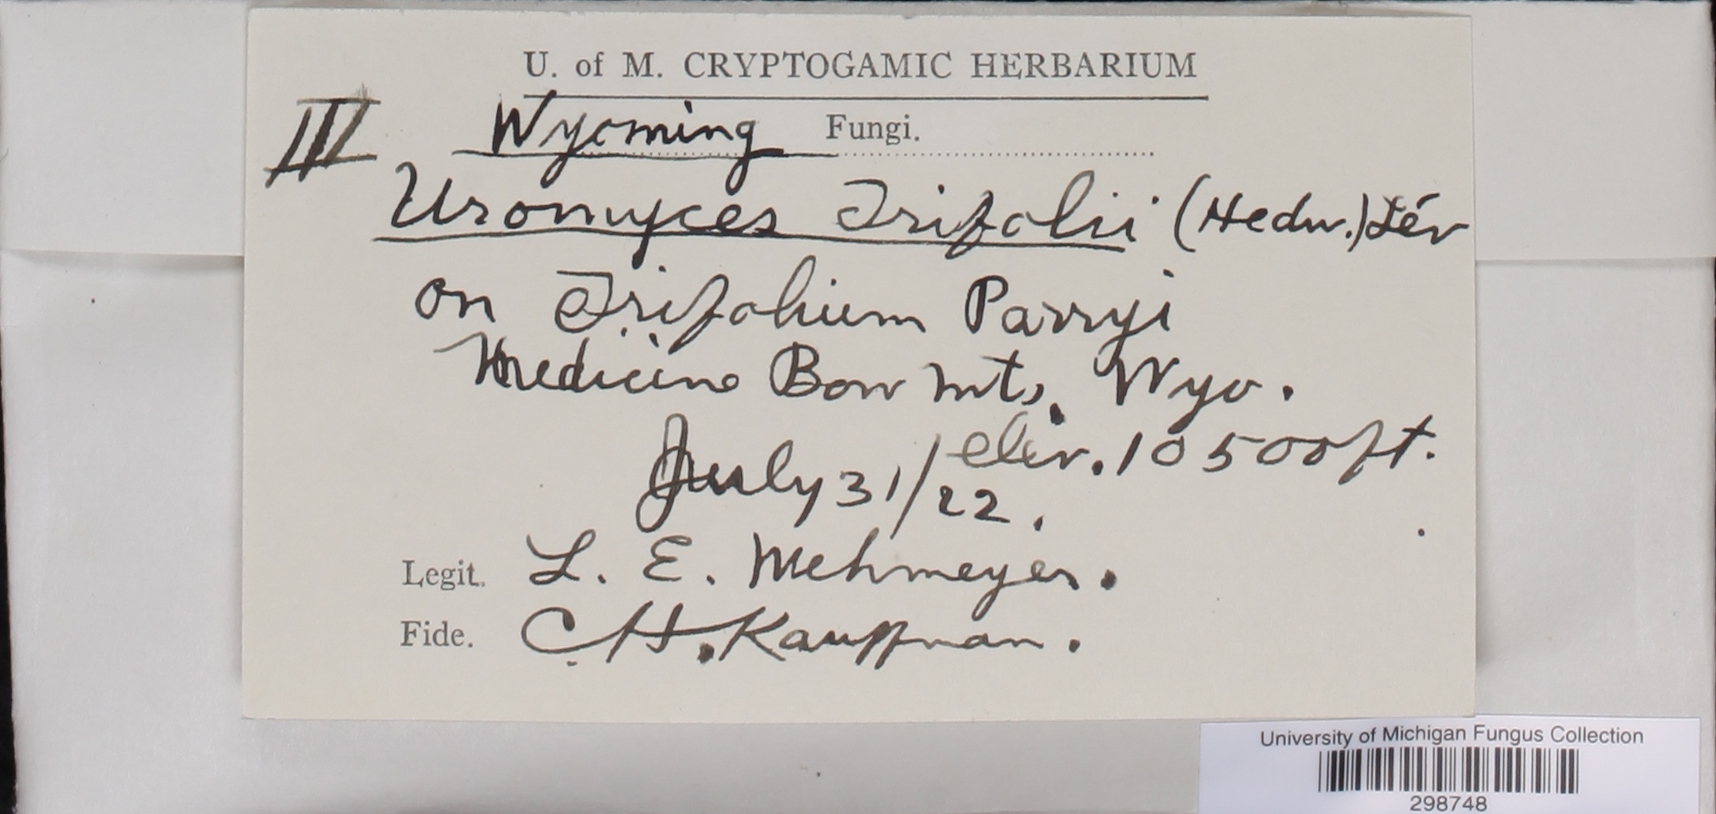 U. of M. CRYPTOGAMIC HERBARIUM
III Wyoming Fungi.
Uromyces Trifolii (Hedw.) Lév
on Trifolium Parryi
Medicine Bow Mts. Wyo.
elev. 10500ft.
July 31/22.
Legit. L. E. Wehmeyer.
Fide. CH. Kauffman.
University of Michigan Fungus Collection
298748